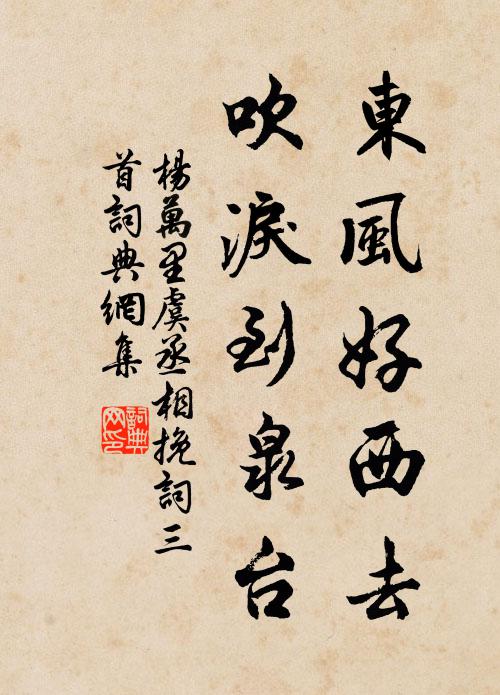 東風好西去
吹淚到泉台
楊萬里虞丞相挽詞三
首詞典網集
詞典
网印